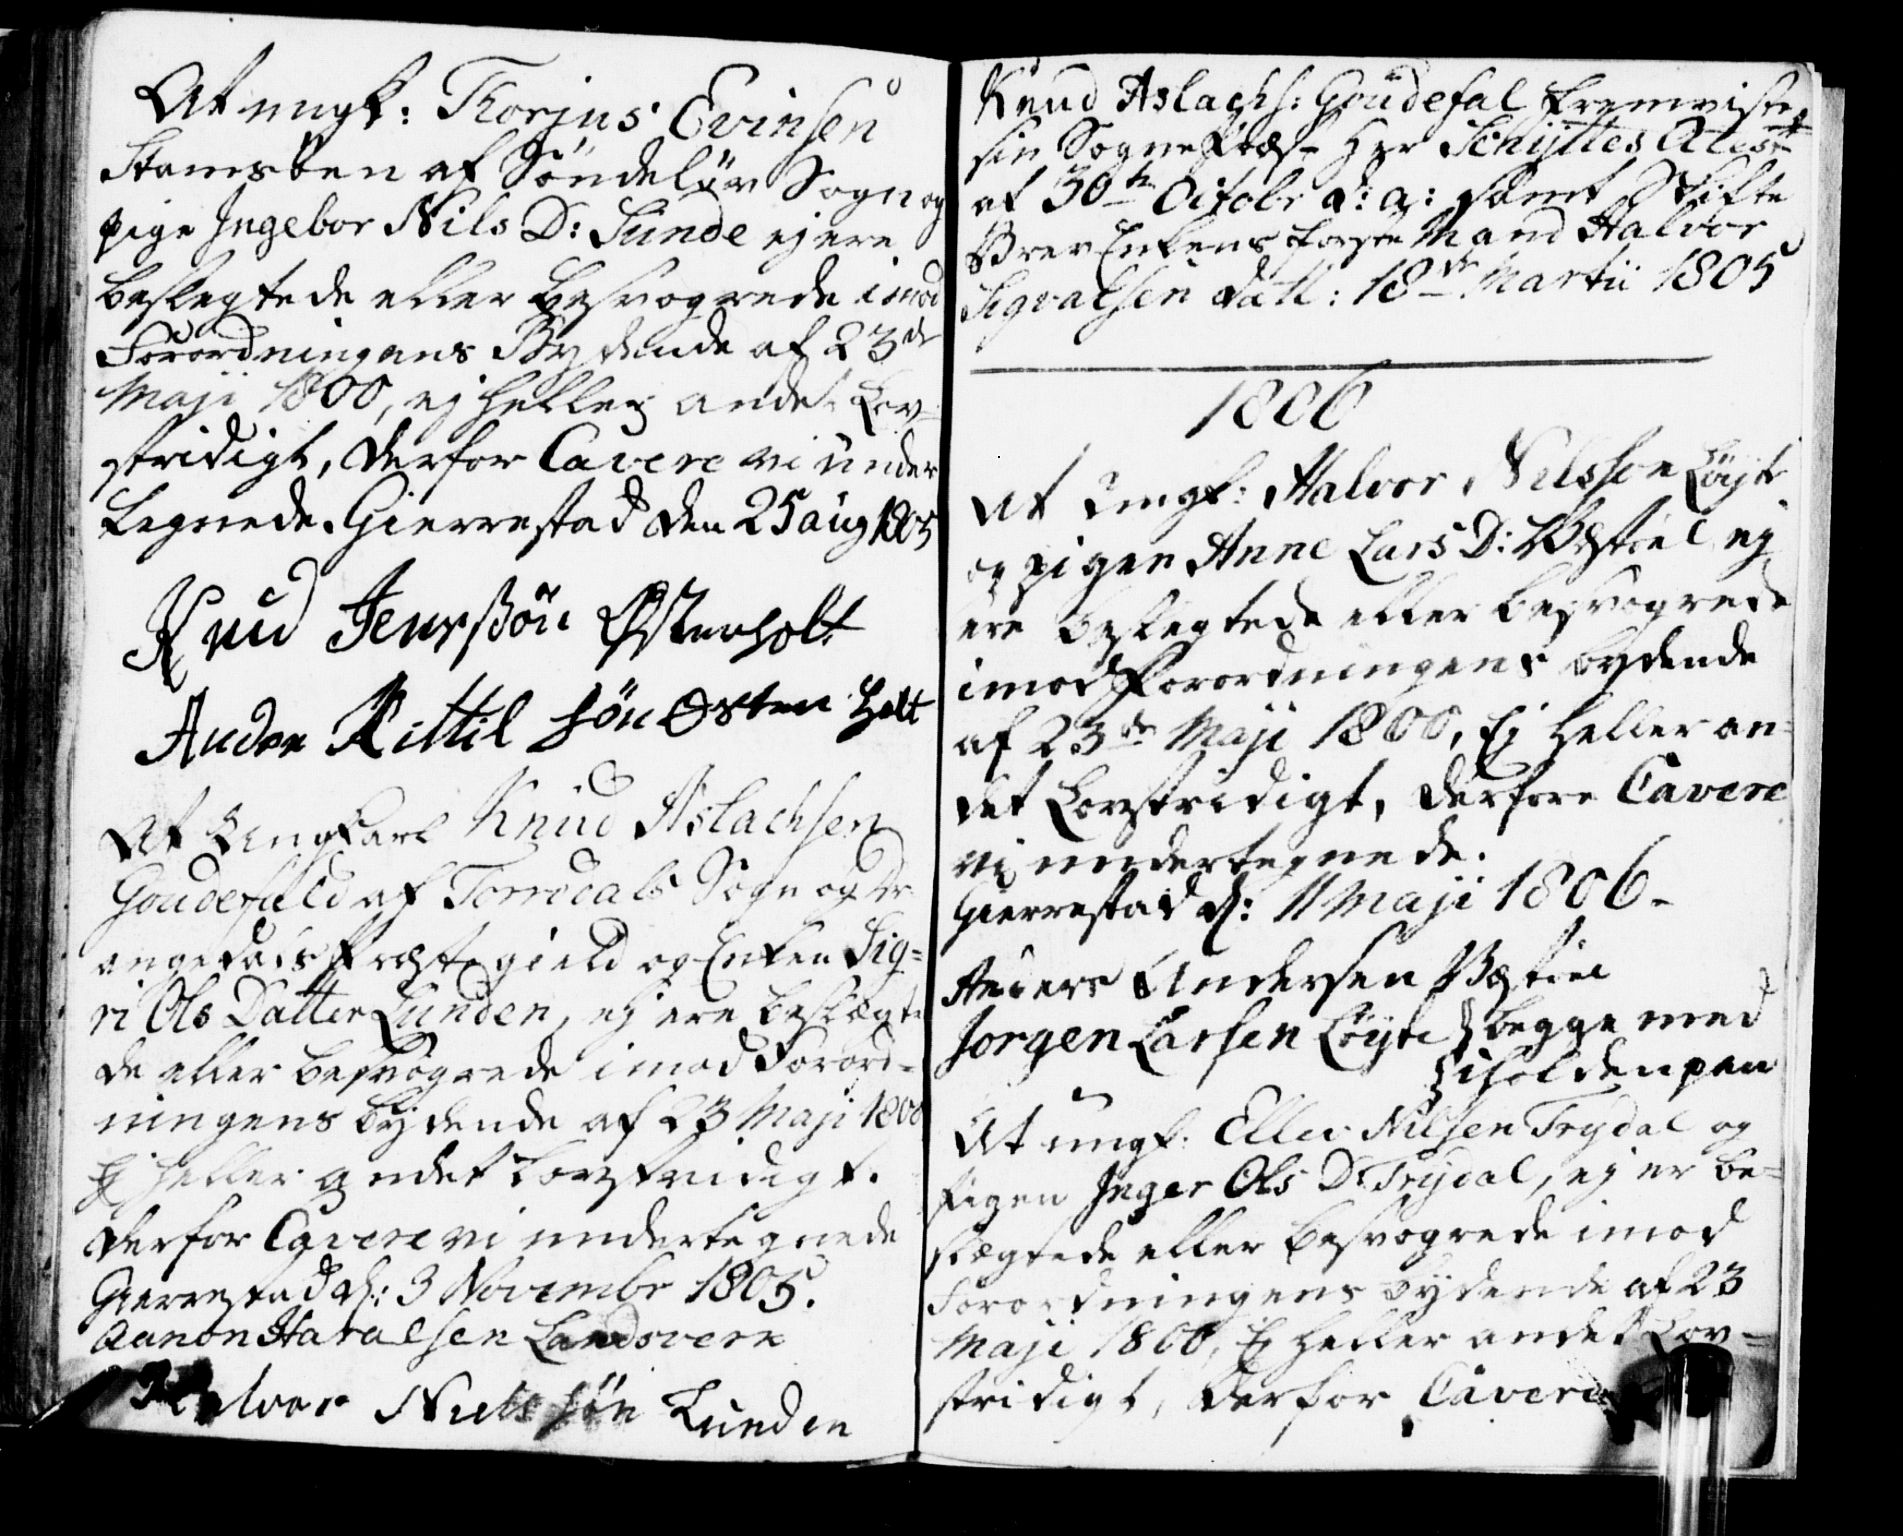 At ungk: Thorjus Evinsen
Stamsöen af Söndeløv Sogn og
pige Ingebor Nils D: Sunde ej ere
beslegtede eller besvogrede imod
Forordningens Bydende af 23de
Maji 1800, ej heller andet Lov-
stridigt, derfor Cavere vi under
tegnede. Gierrestad den 25 aug 1805
Knud Jensßön Østenholt
Anders Kittil sön Østen Holt
At Ungkarl Knud Aslachsen
Goudefald af Torridals Sogn og Dr
angedals Præstegield og Enken Sig-
ri Ols Datter Lunden, ej ere beslægte
de eller besvogrede imod Forord-
ningens bydende af 23 Maji 1800
Ej heller andet Lovstridigt.
derfor Cavere vi undertegnede
Gierrestad d: 3 Novembr 1805.
Aanon Haralsen Landsverk
Halvor Nielssön Lunden
Knud Aslachs: Goudefal fremviste
sin Sogne Præst Hr Schyttes Atest
af 30te Octobr d: a: samt Skifte
Brev Enkens første Mand Halvor
Sigvalsen datt: 18de Martii 1805
1806
At Ungk: Halvor Nilsson Løyte
og pigen Anne Lars D: Wæstøel ej
ere beslegtede eller besvogrede
imod Forordningens bydende
af 23de Maji 1800, Ej heller an-
det Lovstridigt, derfore Cavere
vi undertegnede.
Gierrestad d: 11 Maji 1806-
Anders Andersen Wæstøel
Jorgen Larsen Løyte begge med
iholden pen
At ungk: Ellev Nilsen Trydal og
Pigen Inger Ols D Trydal, ej er be-
slægtede eller besvogrede imod
Forordningens bydende af 23
Maji 1800, Ej heller andet Lov-
stridigt, derfor Cavere